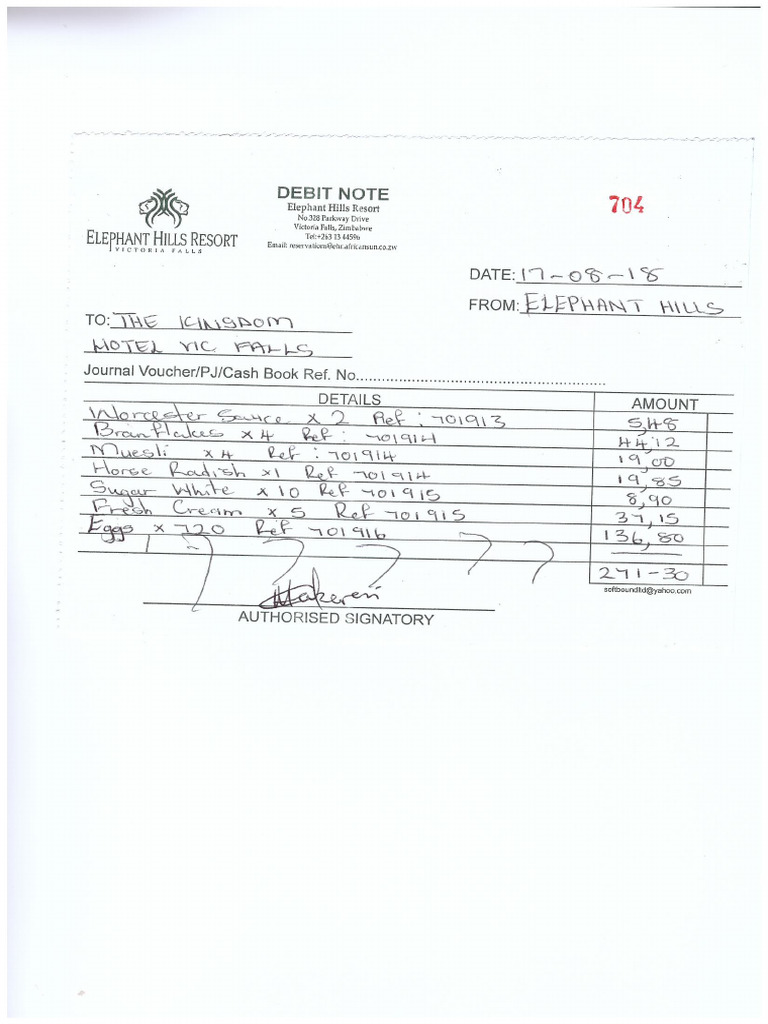 DEBIT NOTE
Elephant Hills Resort
No.328 Parkway Drive
Victoria Falls, Zimbabwe
Tel:+263 13 44596
Email: reservations@ehr.africansun.co.zw
704
ELEPHANT HILLS RESORT
VICTORIA FALLS
DATE: 17-08-18
FROM: ELEPHANT HILLS
TO: THE KINGDOM
HOTEL VIC FALLS
Journal Voucher/PJ/Cash Book Ref. No.
DETAILS AMOUNT
Worcester Sauce x 2 Ref: 701913 5,48
Branflakes x 4 Ref: 701914 44,12
Muesli x 4 Ref: 701914 19,00
Horse Radish x1 Ref 701914 19,85
Sugar White x 10 Ref 701915 8,90
Fresh Cream x 5 Ref 701915 37,15
Eggs x 720 Ref 701916 136,80
271-30
softboundltd@yahoo.com
AUTHORISED SIGNATORY